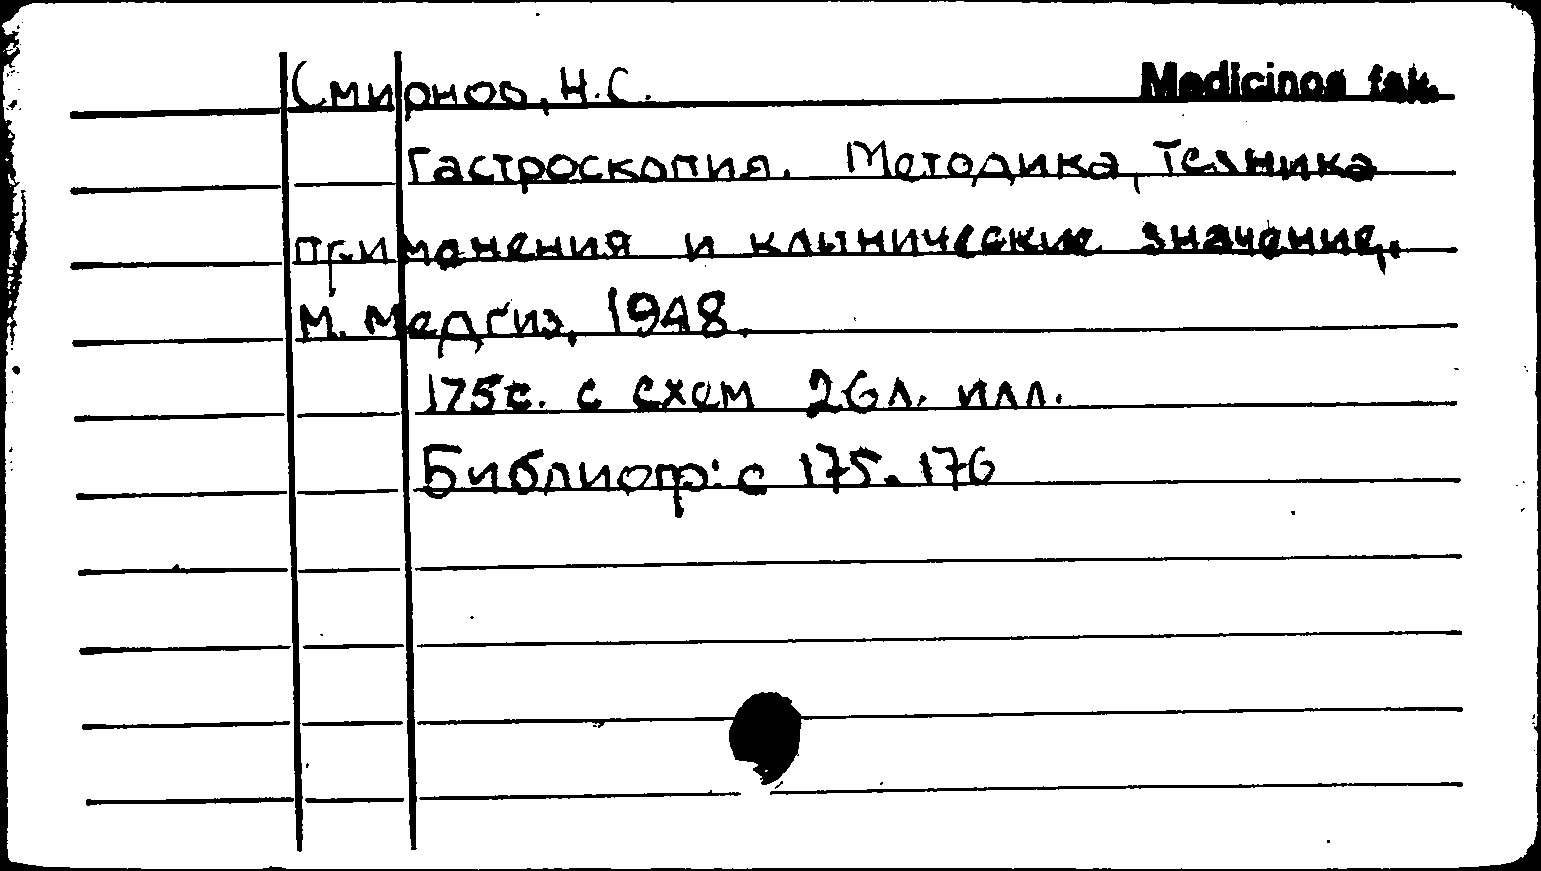 Смирнов, Н.С. Medicinos fak.
Гастроскопия. Методика, Техника
применения и клинические значение,.
М. Медгиз, 1948.
175с. с схем 26л. илл.
Библиогр: с 175-176